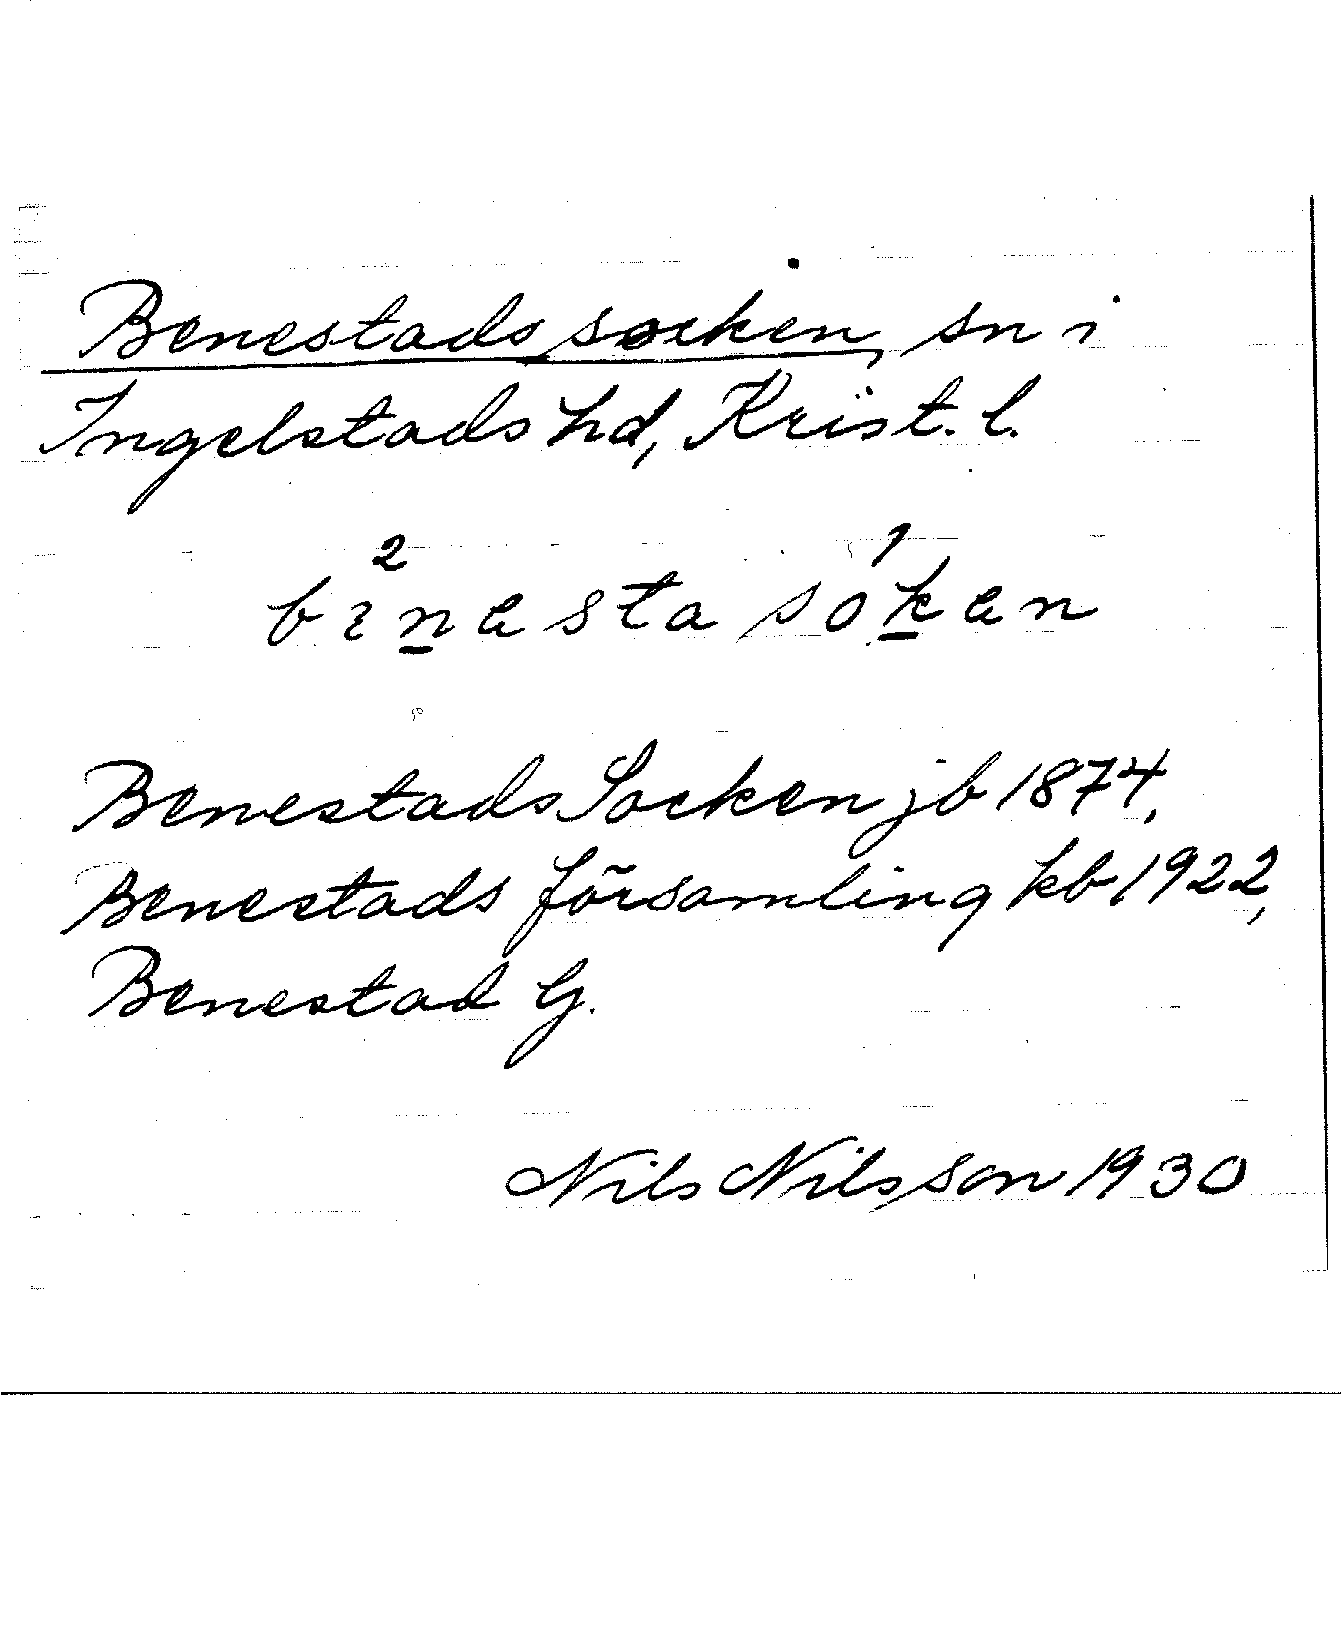 Benestads socken, sn i
Ingelstads hd, Krist. l.
Benestads Socken jb 1874,
Benestads församling kb 1922,
Benestad G.
Nils Nilsson 1930